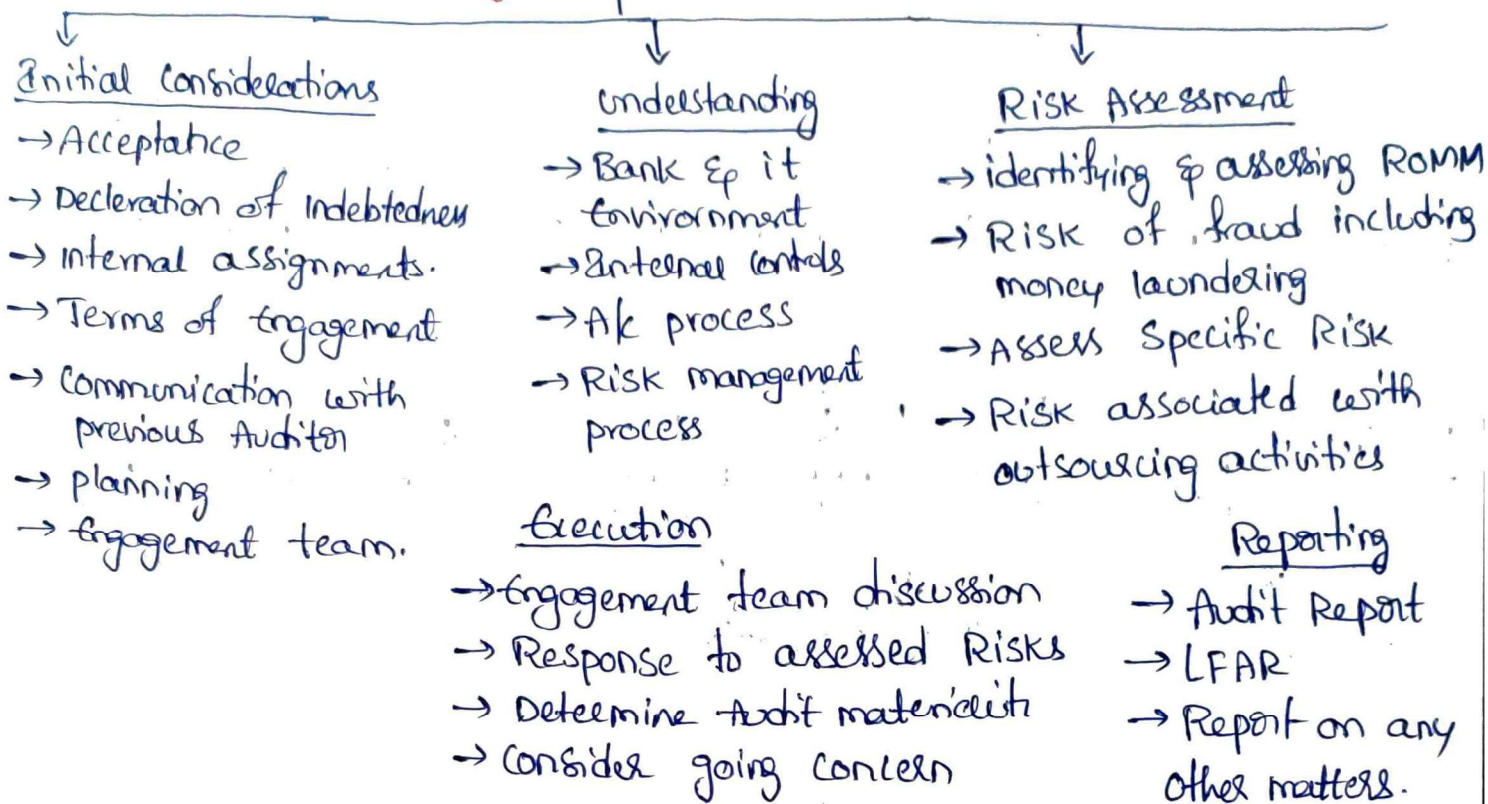 Initial Considerations
→ Acceptance
→ Decleration of indebtedness
→ internal assignments.
→ Terms of Engagement
→ Communication with
previous Auditor
→ planning
→ Engagement team.
understanding
→ Bank & it
Envirornment
→ Internal controls
→ A/c process
→ Risk management
process
Risk Assessment
→ identifying & assessing ROMM
→ Risk of fraud including
money laundering
→ Assess Specific Risk
→ Risk associated with
outsourcing activities
Execution
→ Engagement team discussion
→ Response to assessed Risks
→ Determine Audit
→ Consider going concern
Reporting
→ Audit Report
→ LFAR
→ Report on any
other matters.